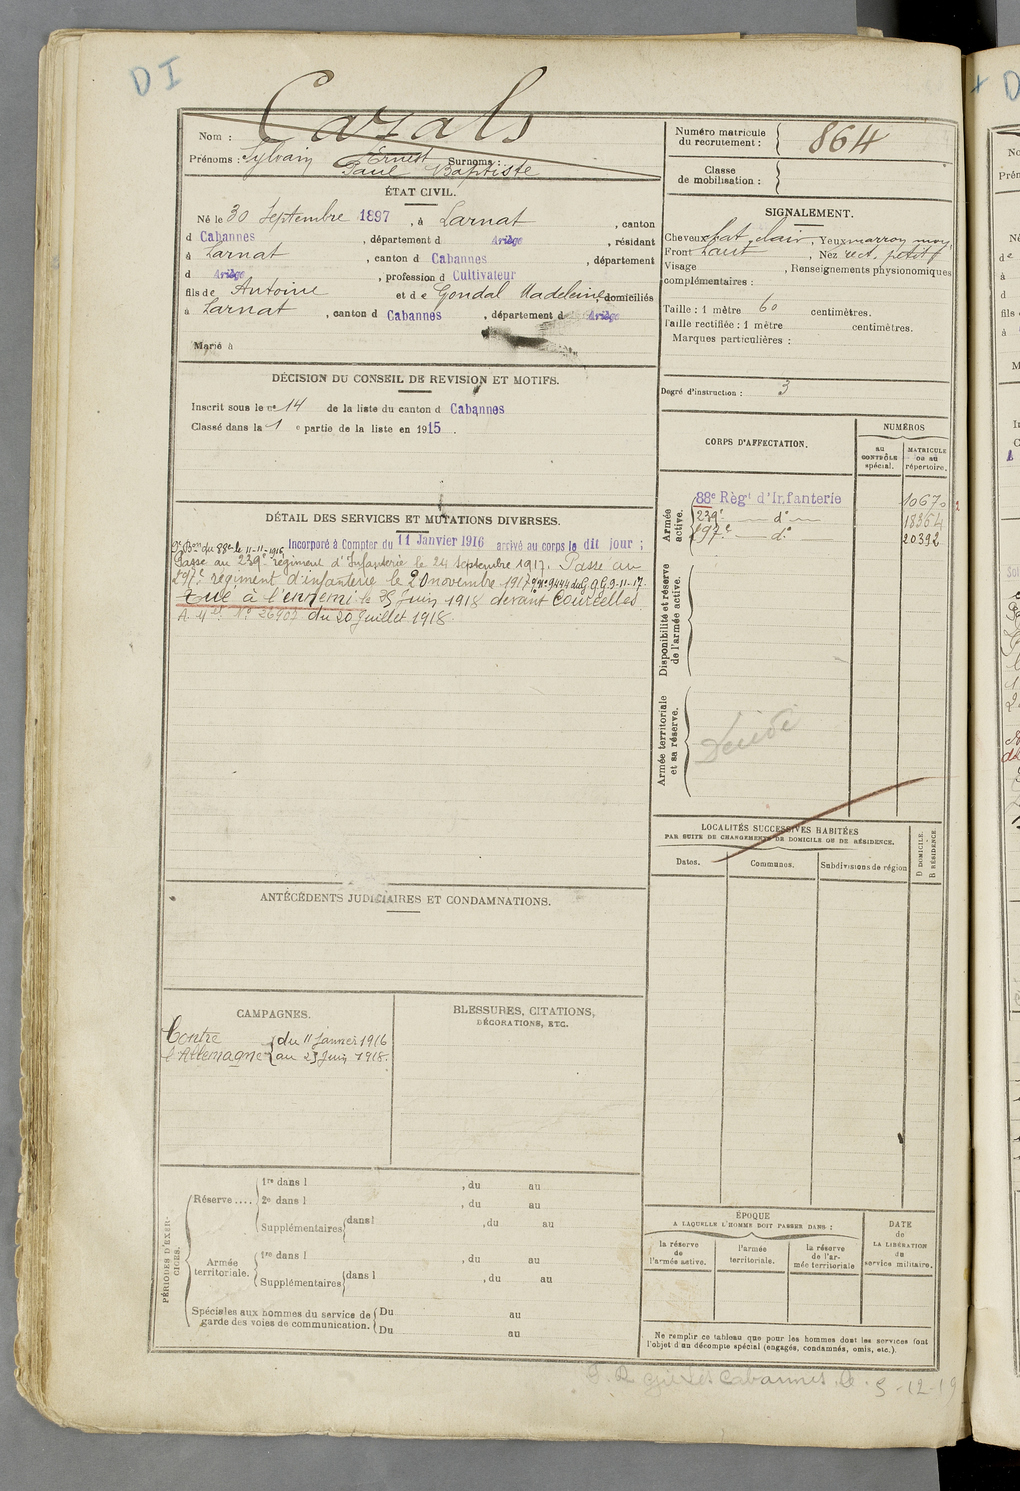 D I
Nom : Cazals
Prénoms : Sylvain Ernest Surnoms :
Paul Baptiste
ÉTAT CIVIL.
Né le 30 Septembre 1897 , à Larnat , canton
d Cabannes , département d Ariège , résidant
à Larnat , canton d Cabannes , département
d Ariège , profession d Cultivateur
fils de Antoine et de Gondal Madeleine, domiciliés
à Larnat , canton d Cabannes , département d Ariège
Marié à
DÉCISION DU CONSEIL DE REVISION ET MOTIFS.
Inscrit sous le no 14 de la liste du canton d Cabannes
Classé dans la 1 e partie de la liste en 1915 .
DÉTAIL DES SERVICES ET MUTATIONS DIVERSES.
du 88e le 11-11-1916 Incorporé à Compter du 11 Janvier 1916 arrivé au corps le dit jour ;
Passé au 239e régiment d'Infanterie le 24 Septembre 1917. Passe au
297e régiment d'infanterie le 20 novembre 1917 No 9444 du G.Q.G 9-11-17
Tué à l'ennemi le 25 Juin 1918 devant Courcelles
A. Mel No 26907 du 20 Juillet 1918.
ANTÉCÉDENTS JUDICIAIRES ET CONDAMNATIONS.
CAMPAGNES.
Contre { du 11 Janvier 1916
l'Allemagne { au 25 Juin 1918.
BLESSURES, CITATIONS,
DÉCORATIONS, ETC.
PÉRIODES D'EXERCICES.
Réserve ....
1re dans l , du au
2e dans l , du au
Supplémentaires {dans l ,du au
Armée territoriale.
1re dans l , du au
Supplémentaires {dans l , du au
Spéciales aux hommes du service de {Du au
garde des voies de communication. {Du au
Numéro matricule
du recrutement : 864
Classe
de mobilisation :
SIGNALEMENT.
Cheveux chat. clair , Yeux marron moy.
Front haut , Nez rect. petit
Visage , Renseignements physionomiques
complémentaires :
Taille : 1 mètre 60 centimètres.
Taille rectifiée : 1 mètre centimètres.
Marques particulières :
Degré d'instruction : 3
CORPS D'AFFECTATION.
NUMÉROS
au CONTRÔLE spécial.
MATRICULE ou au répertoire.
Armée active.
88e Règt d'Infanterie 10670
239e — do — 18364
297e — do — 20392
Disponibilité et réserve de l'armée active.
Armée territoriale et sa réserve.
Décédé
LOCALITÉS SUCCESSIVES HABITÉES
PAR SUITE DE CHANGEMENTS DE DOMICILE OU DE RÉSIDENCE.
Dates.
Communes.
Subdivisions de région
D DOMICILE.
R RÉSIDENCE.
ÉPOQUE
A LAQUELLE L'HOMME DOIT PASSER DANS :
la réserve de l'armée active.
l'armée territoriale.
la réserve de l'armée territoriale
DATE
de
LA LIBÉRATION
du
service militaire.
Ne remplir ce tableau que pour les hommes dont les services font
l'objet d'un décompte spécial (engagés, condamnés, omis, etc.).
Les Cabannes le 5-12-19